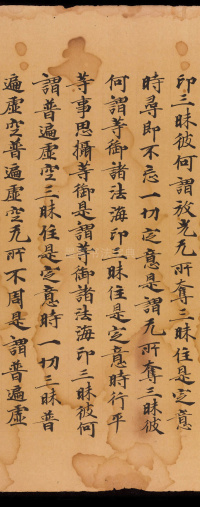 印三昧彼何謂放光无所奪三昧住是定意
時尋即不忘一切定意是謂无所奪三昧彼
何謂等御諸法海印三昧住是定意時行平
等事思惟等御是謂等御諸法海印三昧彼何
謂普遍虛空三昧住是定意時一切三昧普
遍虛空普遍虛空无所不周是謂普遍虛